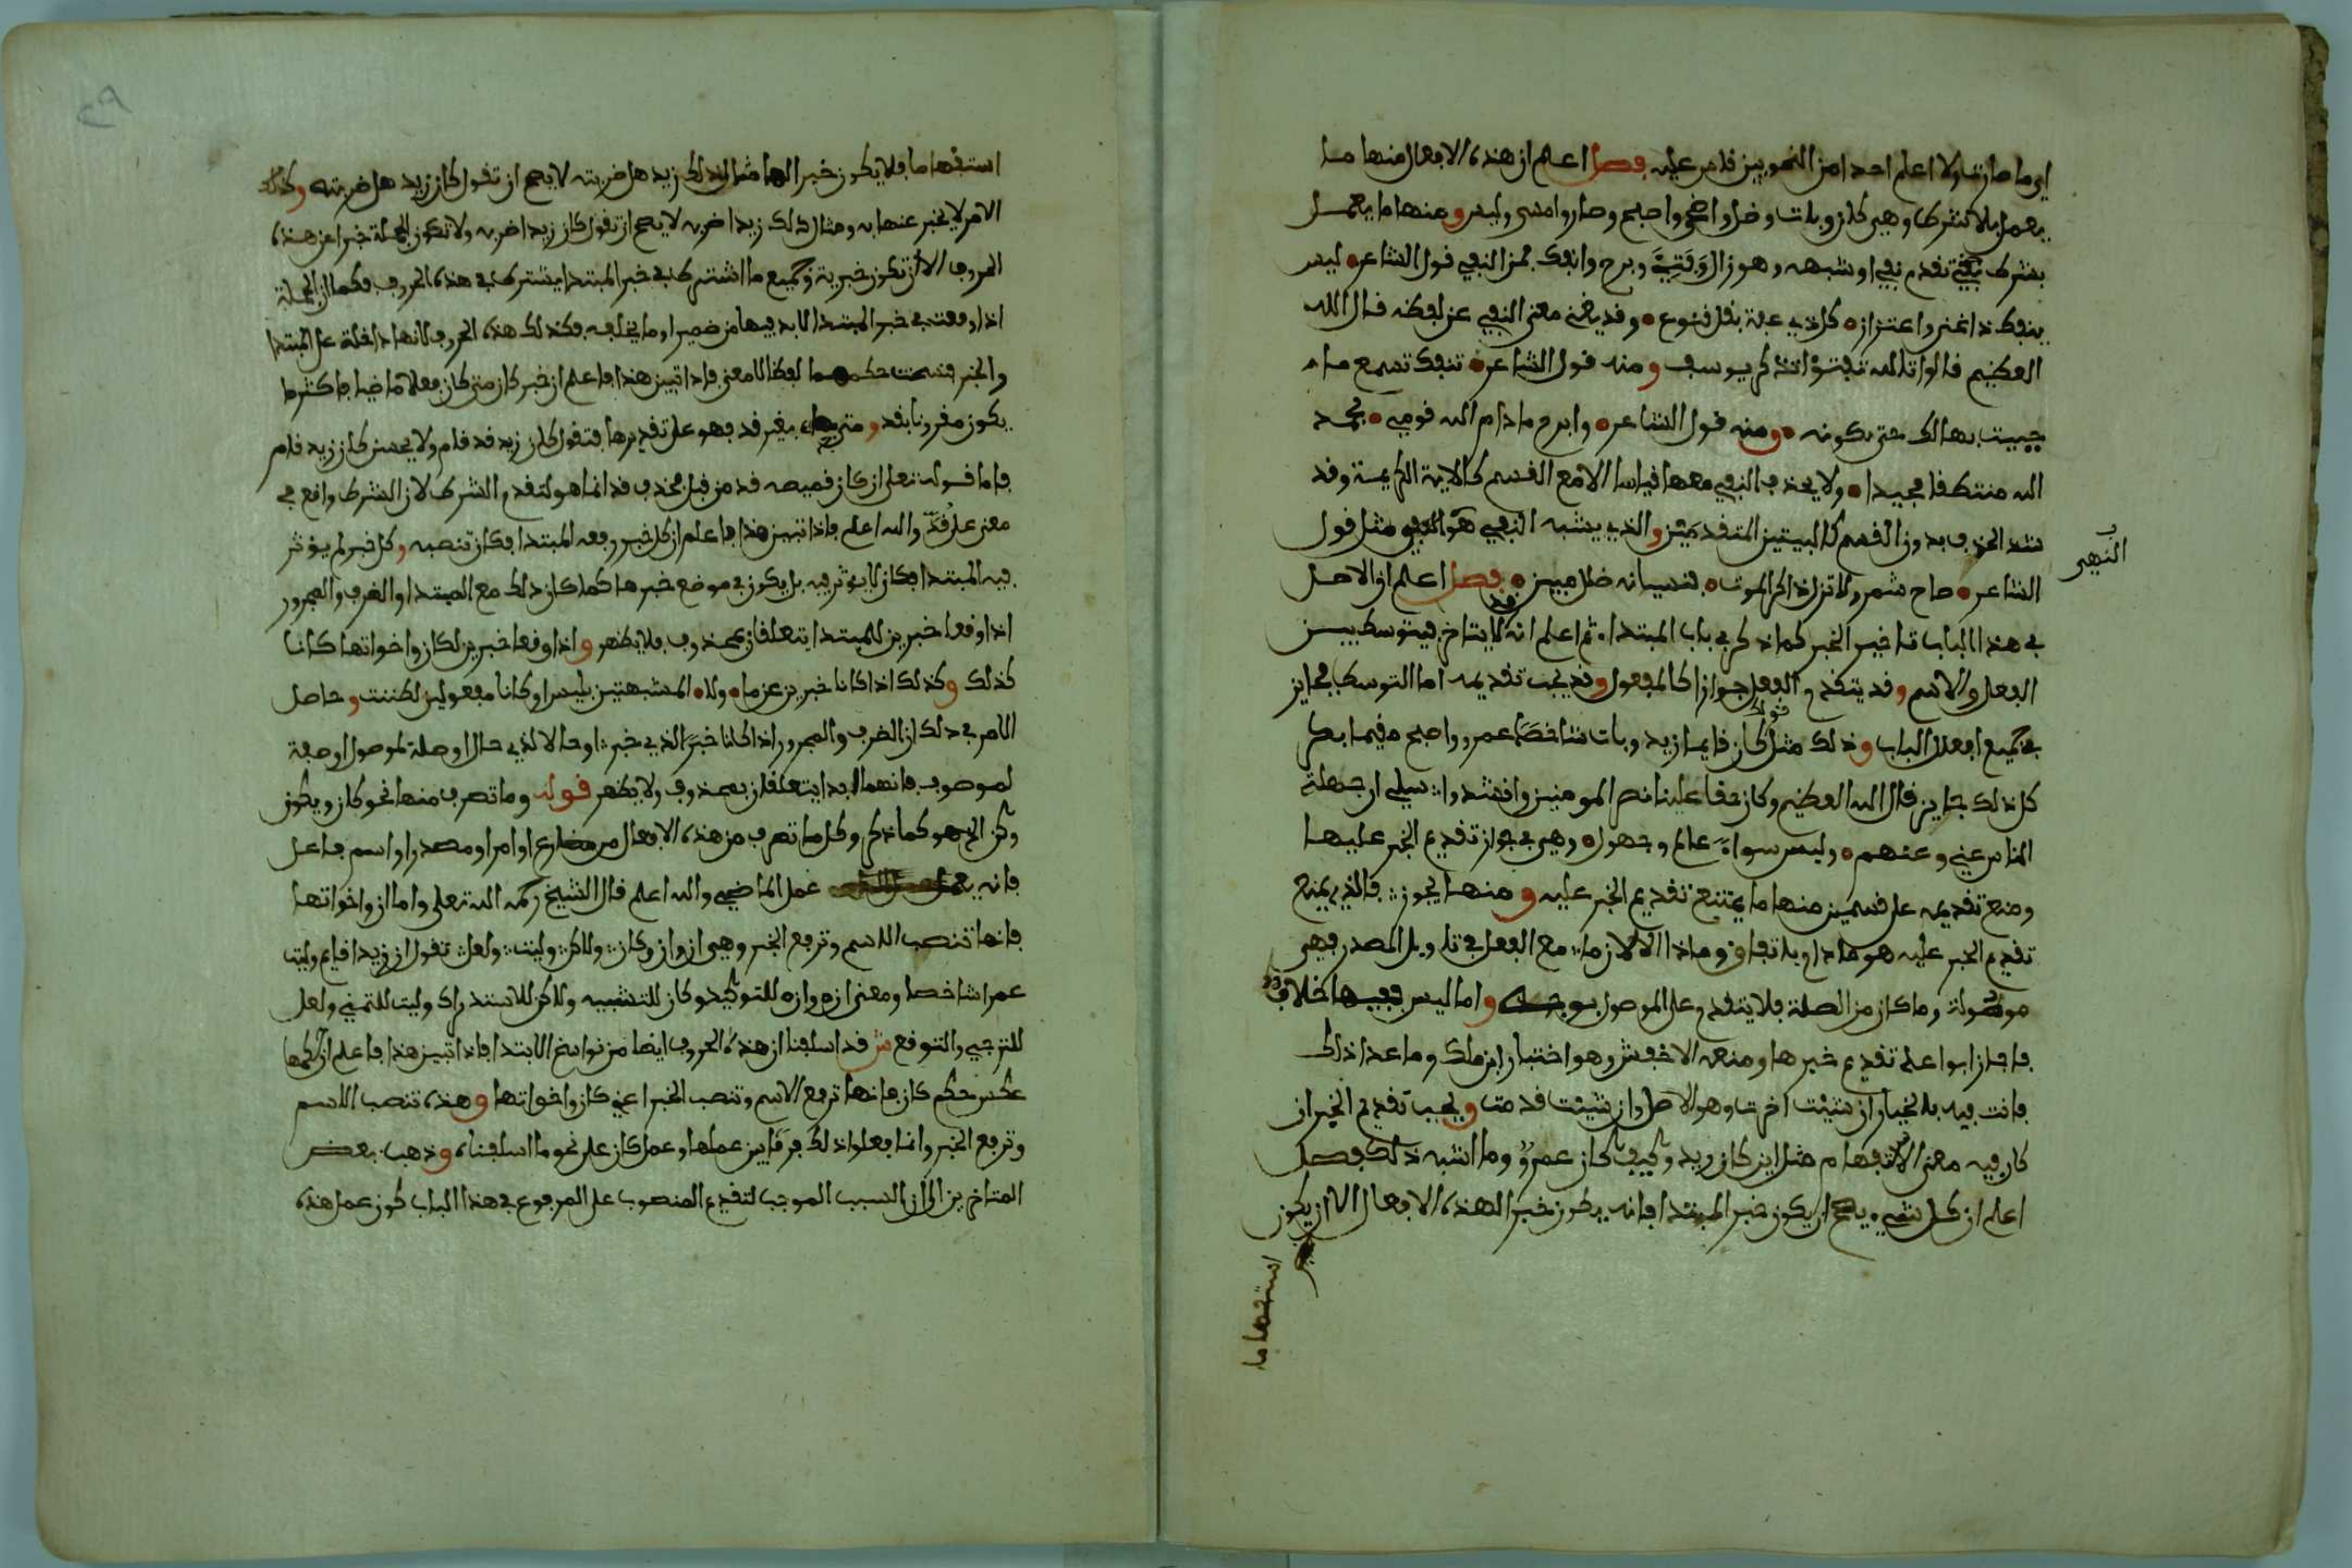 اي ما صارت ولا اعلم احدا من النحويين قدم عليه فصل اعلم ان هذه الافعال منها ما
يعمل بلا شرط وهي كان وبات وظل واضحى واصبح وصار وامسى وليس ومنها ما يعمل
بشرط تقدم نفي او شبهه وهو زال وفتئ وبرح وانفك فمن النفي قول الشاعر ليس
ينفك ذا غنى واعتزاز كل ذي عفة يقل قنوع وقد يغني معنى النفي عن لفظه قال الله
العظيم قالوا تالله تفتؤا تذكر يوسف ومنه قول الشاعر تنفك تسمع ما
حييت بهالك حتى تكونه ومنه قول الشاعر وابرح ما دام الله قومي بحمد
الله منتطقا مجيدا ولا يحذف النفي معها قياسا الا مع القسم كالاية الكريمة وقد
شذ الحذف بدون القسم كالبيتين المتقدمين والذي يشبه النفي هو النهي مثل قول
النهي
الشاعر صاح شمر ولا تزل ذاكر الموت فنسيانه ضلال مبين فصل اعلم ان الاصل
في هذا الباب تاخير الخبر كما ذكر في باب المبتدا ثم اعلم انه قد لا يتاخر فيتوسط بين
الفعل والاسم وقد يتقدم الفعل جوازا كالمفعول وقد يجب تقديمه اما التوسط فجايز
في جميع افعال الباب وذلك مثل قولك كان قايما زيد وبات شاخصا عمرو واصبح مقيما بكر
كل ذلك جايز قال الله العظيم وكان حقا علينا نصر المومنين وانشدوا سلي ان جهلت
الناس عني وعنهم وليس سواء عالم وجهول وهي في جواز تقديم الخبر عليها
ومنع تقديمه على قسمين منها ما يمتنع تقديم الخبر عليه ومنها يجوز فالذي يمنع
تقديم الخبر عليه هو ما دام باتفاق وماذا الا لان ما مع الفعل في تاويل المصدر فهي
موصولة وما كان من الصلة فلا يتقدم على الموصول بوجه واما ليس ففيها خلاف
فاجاز ابوا علي تقديم خبرها ومنعه الاخفش وهو اختيار ابن ملك وما عدا ذلك
فانت فيه بالخيار ان شئت اخرت وهو الاصل وان شئت قدمت ويجب تقديم الخبر ان
كان فيه معنى الاستفهام مثل اين كان زيد وكيف كان عمرو وما اشبه ذلك فصل
اعلم ان كل شيء يصح ان يكون خبر المبتدا فانه يكون خبرا لهذه الافعال الا ان يكون
استفهاما
استفهاما فلا يكون خبرا لها مثال ذلك زيد هل ضربته لا يصح ان تقول كان زيد هل ضربته وكذلك
الامر لا يخبر عنها به ومثال ذلك زيد اضربه لا يصح ان تقول كان زيد اضربه ولا تكون الجملة خبرا عن هذه
الحروف الا ان تكون خبرية وجميع ما اشترط في خبر المبتدا يشترط في هذه الحروف فكما ان الجملة
اذا وقعت في خبر المبتدا لا بد فيها من ضمير او ما يخلفه فكذلك هذه الحروف لانها داخلة على المبتدا
والخبر فنسخت حكمهما لفظا لا معنى فاذا تبين هذا فاعلم ان خبر كان متى كان فعلا ماضيا فاكثر ما
يكون مقرونا بقد ومتى جاء بغير قد فهو على تقديرها فتقول كان زيد قد قام ولا يحسن كان زيد قام
فاما قوله تعلى ان كان قميصه قد من قبل فحذف قد انما هو لتقدم الشرط لان الشرط واقع في
معنى على قد والله اعلم فاذا تبين هذا فاعلم ان كل خبر رفعه المبتدا فكان تنصبه وكل خبر لم يؤثر
فيه المبتدا فكان لا يوثر فيه بل يكون في موضع خبرها كما كان ذلك مع المبتدا والظرف والمجرور
اذا وقعا خبرين للمبتدا يتعلقان بمحذوف فلا يظهر واذا وقعا خبرين لكان واخواتها كانا
كذلك وكذلك اذا كانا خبرين عن ما ولا المشبهتين بليس او كانا مفعولين لظننت وحاصل
الامر في ذلك ان الظرف والمجرور اذا كانا خبرا لذي خبر او حالا لذي حال او صلة لموصول او صفة
لموصوف فانهما ابدا يتعلقان بمحذوف ولا يظهر قوله وما تصرف منها نحو كان ويكون
وكن الخ هو كما ذكر وكل ما تصرف من هذه الافعال من مضارع او امر او مصدر او اسم فاعل
فانه يعمل عمل الماضي والله اعلم قال الشيخ رحمه الله تعلى واما ان واخواتها
فانها تنصب الاسم وترفع الخبر وهي ان وان وكان ولاكن وليت ولعل تقول ان زيدا قايم وليت
عمرا شاخصا ومعنى ان وان للتوكيد وكان للتشبيه ولاكن للاستدراك وليت للتمني ولعل
للترجي والتوقع ش قد اسلفنا ان هذه الحروف ايضا من نواسخ الابتدا فاذا تبين هذا فاعلم ان حكمها
عكس حكم كان فانها ترفع الاسم وتنصب الخبر اعني كان واخواتها وهذه تنصب الاسم
وترفع الخبر وانما فعلوا ذلك فرقا بين عملها وعمل كان على نحو ما اسلفناه وذهب بعض
المتاخرين الى ان السبب الموجب لتقديم المنصوب على المرفوع في هذا الباب كون عمل هذه